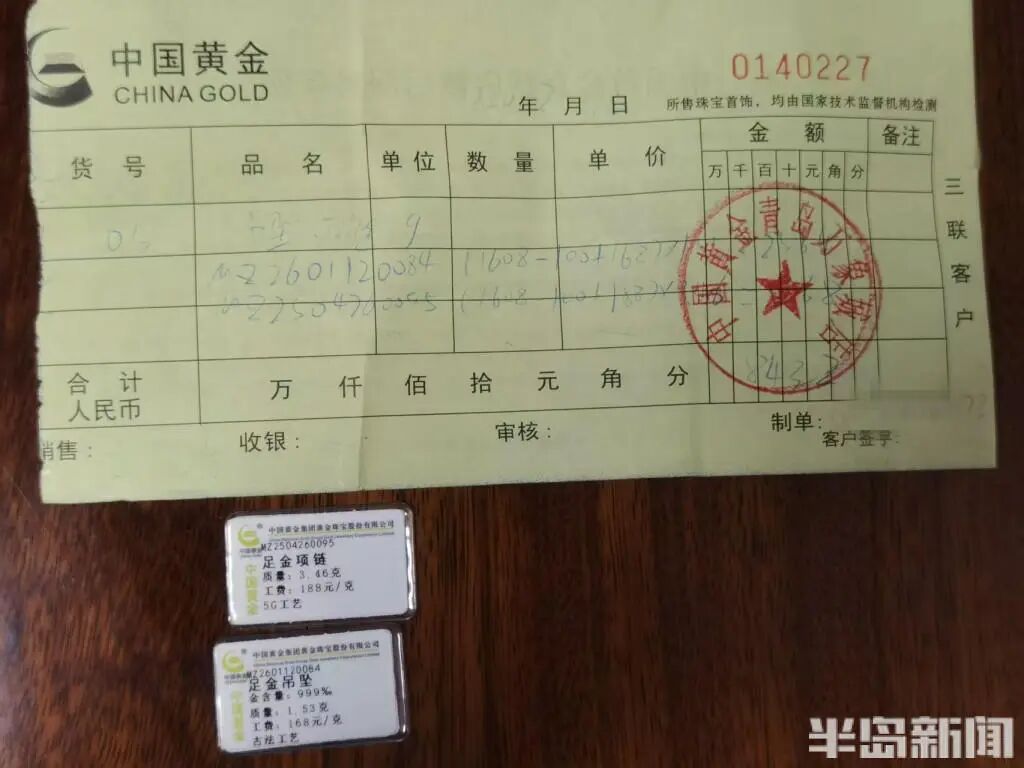 中国黄金
CHINA GOLD
0140227
年 月 日
所售珠宝首饰，均由国家技术监督机构检测
货号 品名 单位 数量 单价 金额 备注
万 千 百 十 元 角 分
g
MZ2601120084 (1608-100+168)×
MZ2504260095 (1608-100+188)×
合计
人民币
万 仟 佰 拾 元 角 分
销售： 收银： 审核： 制单：
客户签字：
三联客户
中国黄金青岛万象城店
中国黄金
中国黄金集团黄金珠宝股份有限公司
MZ2504260095
足金项链
质量：3.46克
工费：188元/克
5G工艺
中国黄金
中国黄金
中国黄金集团黄金珠宝股份有限公司
MZ2601120084
足金吊坠
金含量：999‰
质量：1.53克
工费：168元/克
古法工艺
中国黄金
半岛新闻